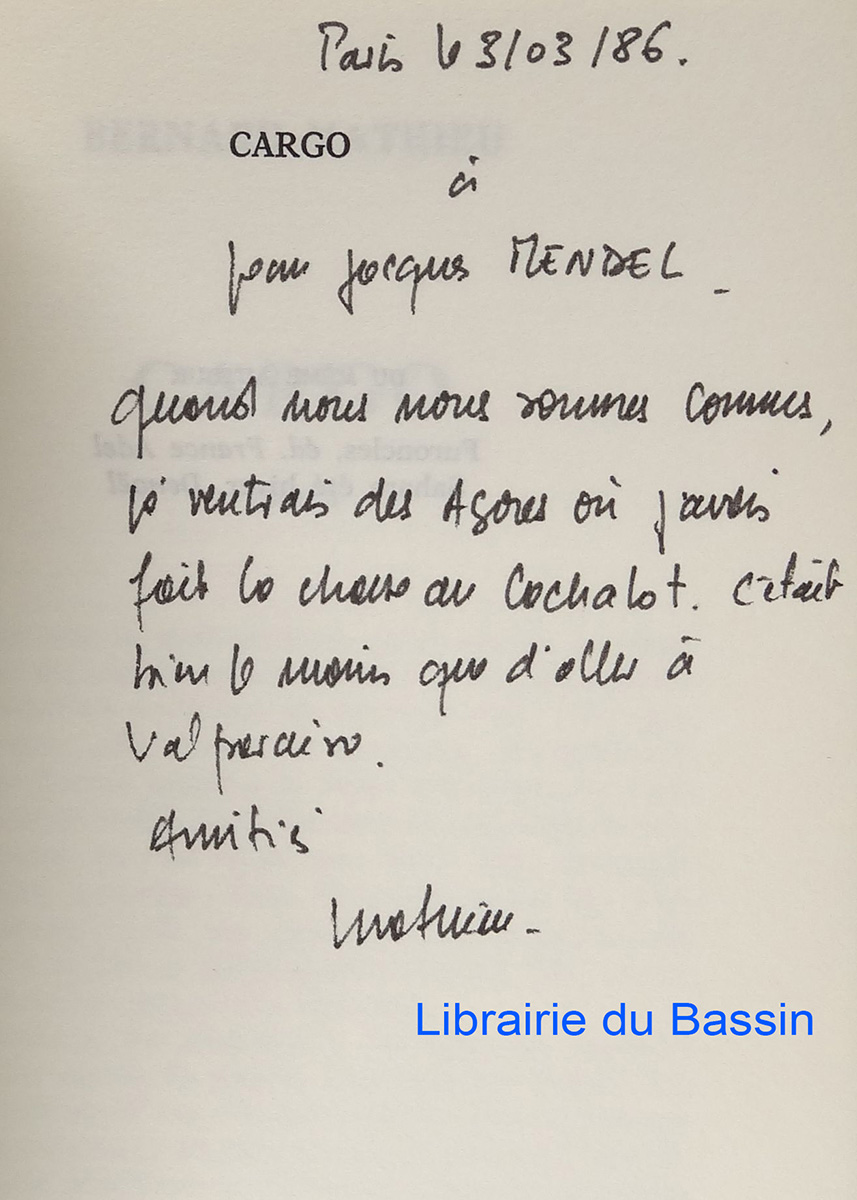 Paris le 3/03/86.
CARGO
à
Jean Jacques MENDEL -
Quand nous nous sommes connus,
je rentrais des Açores où j'avais
fait la chasse au Cachalot. C'était
bien le moins que d'aller à
Valparaiso.
Amitiés
Mathieu -
Librairie du Bassin